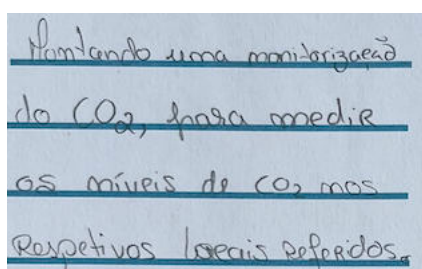 Montando uma monitorização
do CO2, para medir
os níveis de CO2 nos
respetivos locais referidos.